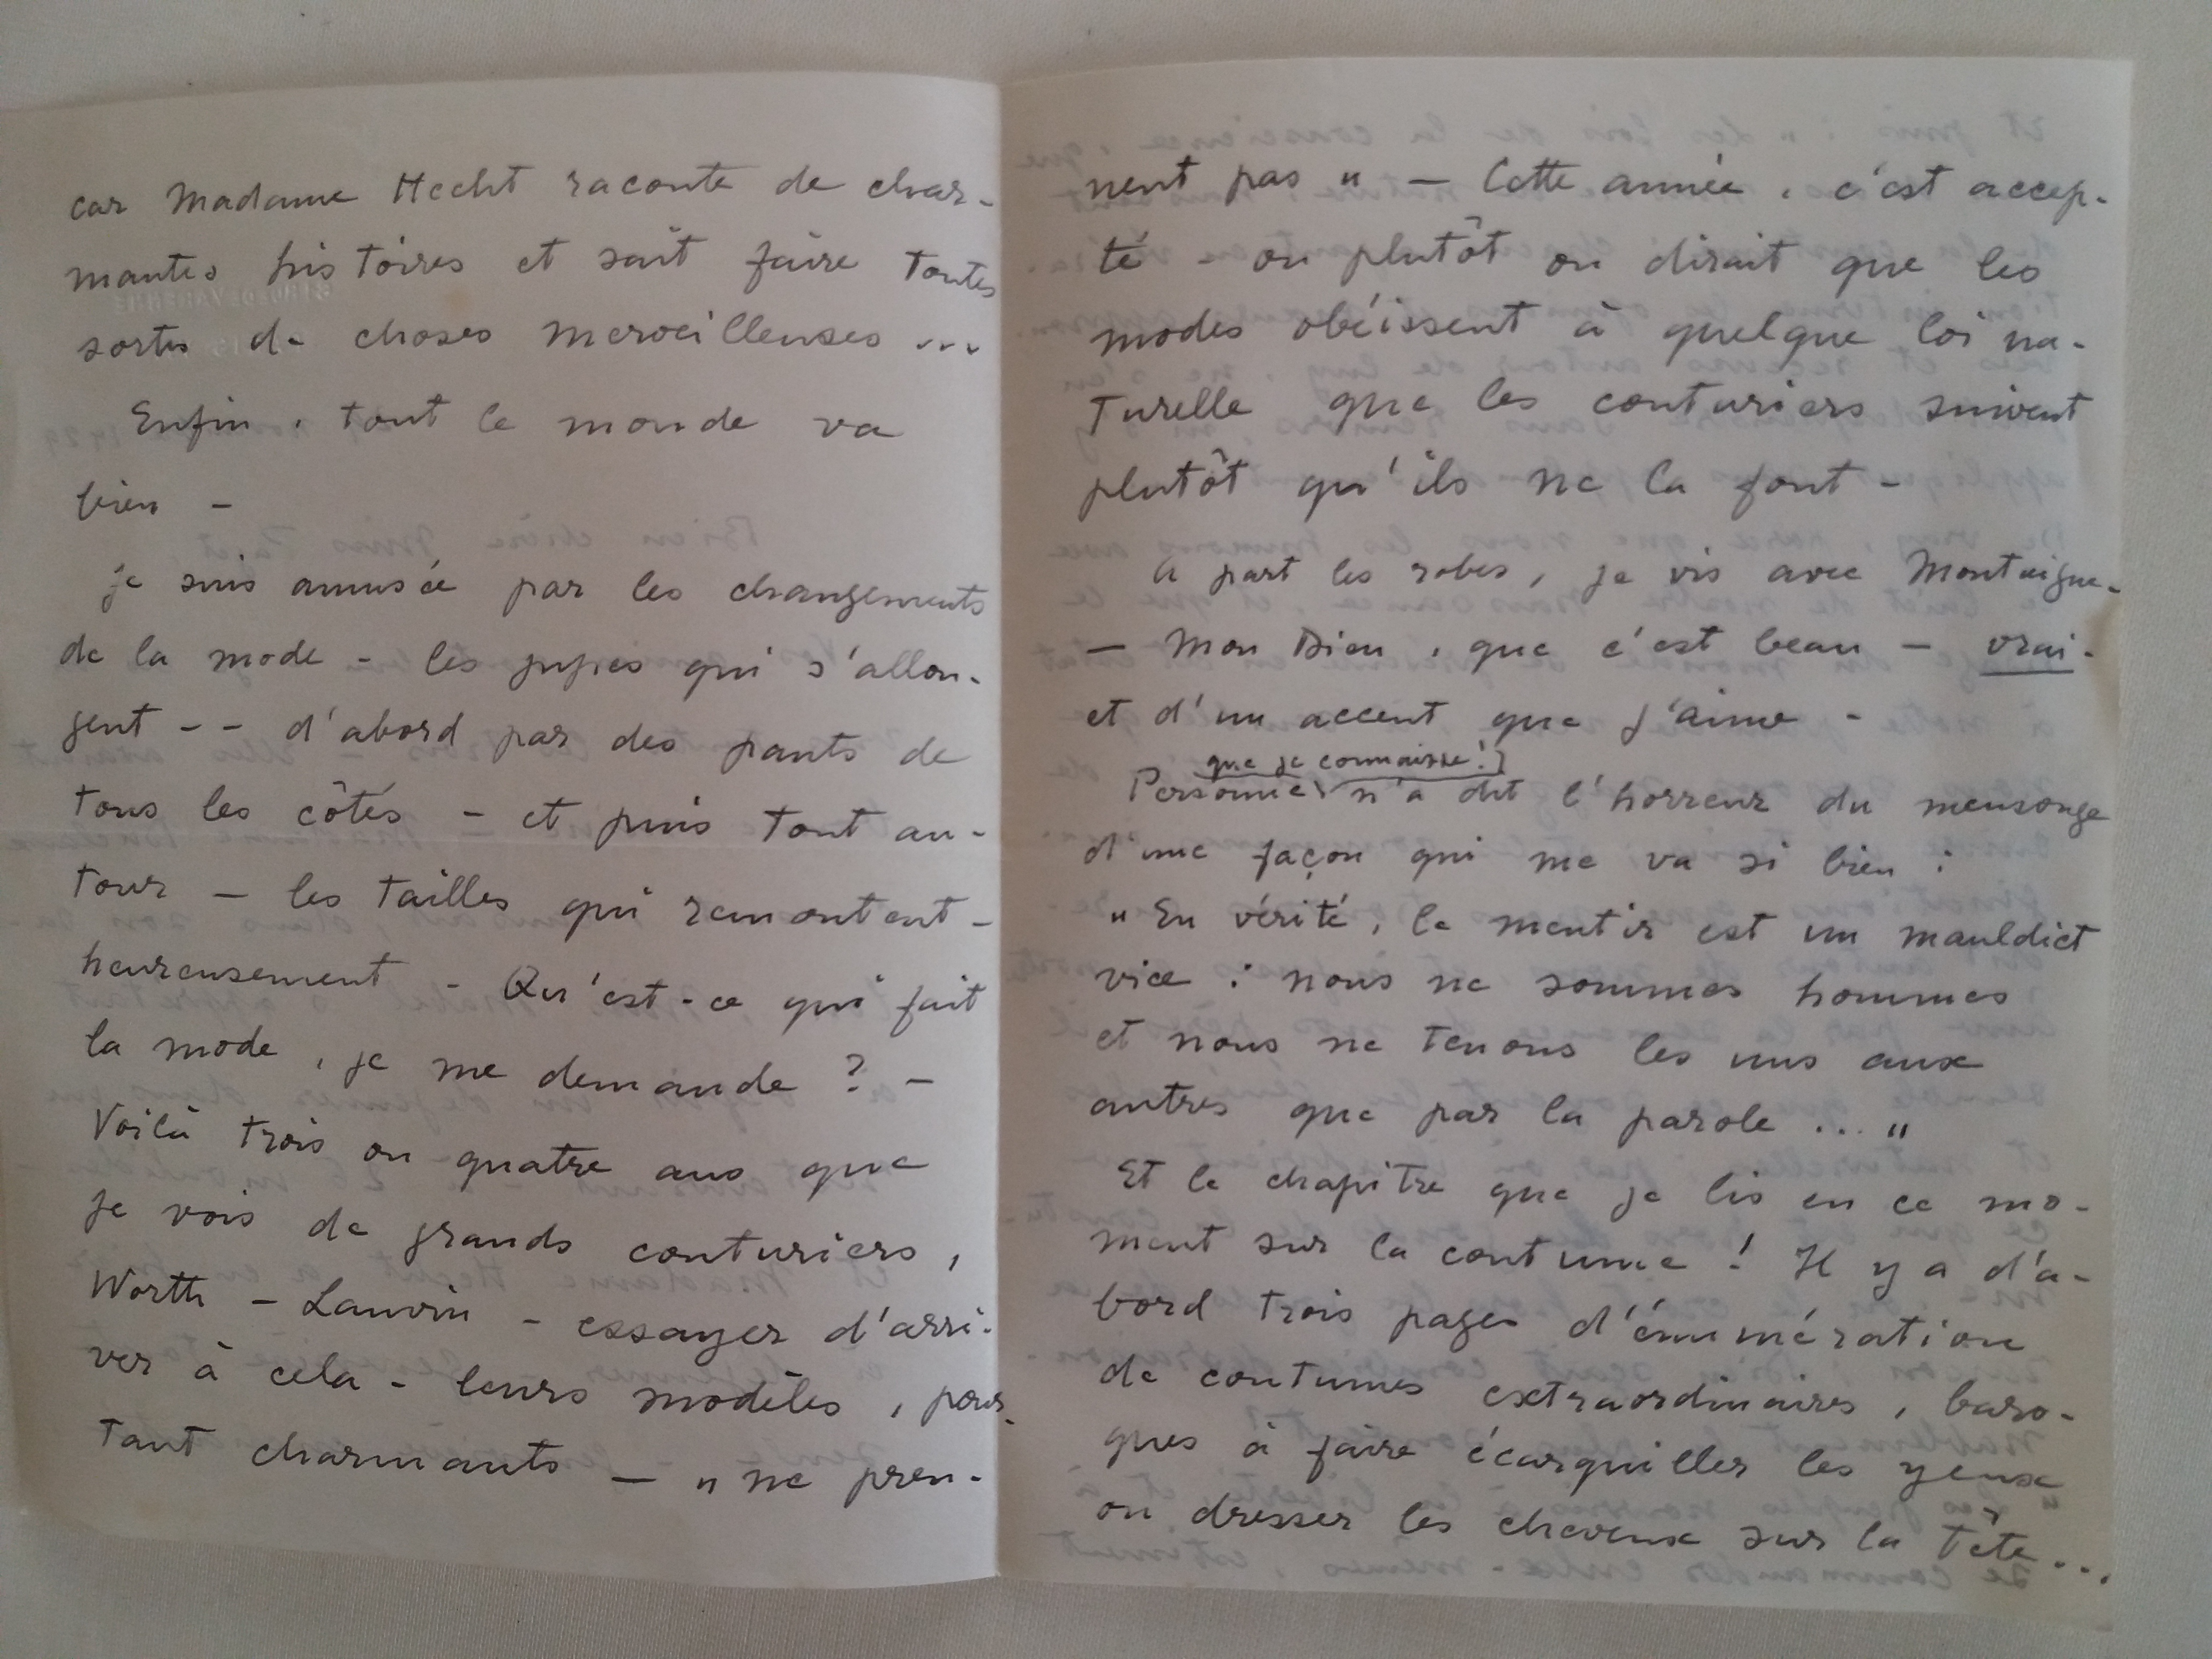 car Madame Hecht raconte de char-
mantes histoires et sait faire toutes
sortes de choses merveilleuses ...
Enfin, tout le monde va
bien -
je suis amusée par les changements
de la mode - les jupes qui s'allon-
gent - - d'abord par des pants de
tous les côtés - et puis tout au-
tour - les tailles qui remontent -
heureusement - Qu'est-ce qui fait
la mode, je me demande ? -
Voilà trois ou quatre ans que
je vois de grands couturiers,
Worth - Lanvin - essayer d'arri-
ver à cela - leurs modèles, pour-
tant charmants — " ne pren-
nent pas " — Cette année, c'est accep-
té - ou plutôt on dirait que les
modes obéissent à quelque loi na-
turelle que les couturiers suivent
plutôt qu'ils ne la font -
A part les robes, je vis avec Montaigne -
— Mon Dieu, que c'est beau — vrai -
et d'un accent que j'aime -
que je connaisse !
Personne n'a dit l'horreur du mensonge
d'une façon qui me va si bien :
" En vérité, le mentir est un mauldict
vice : nous ne sommes hommes
et nous ne tenons les uns aux
autres que par la parole ... "
Et le chapitre que je lis en ce mo-
ment sur la coutume ! Il y a d'a-
bord trois pages d'énumération
de coutumes extraordinaires, baro-
ques à faire écarquiller les yeux
ou dresser les cheveux sur la tête...